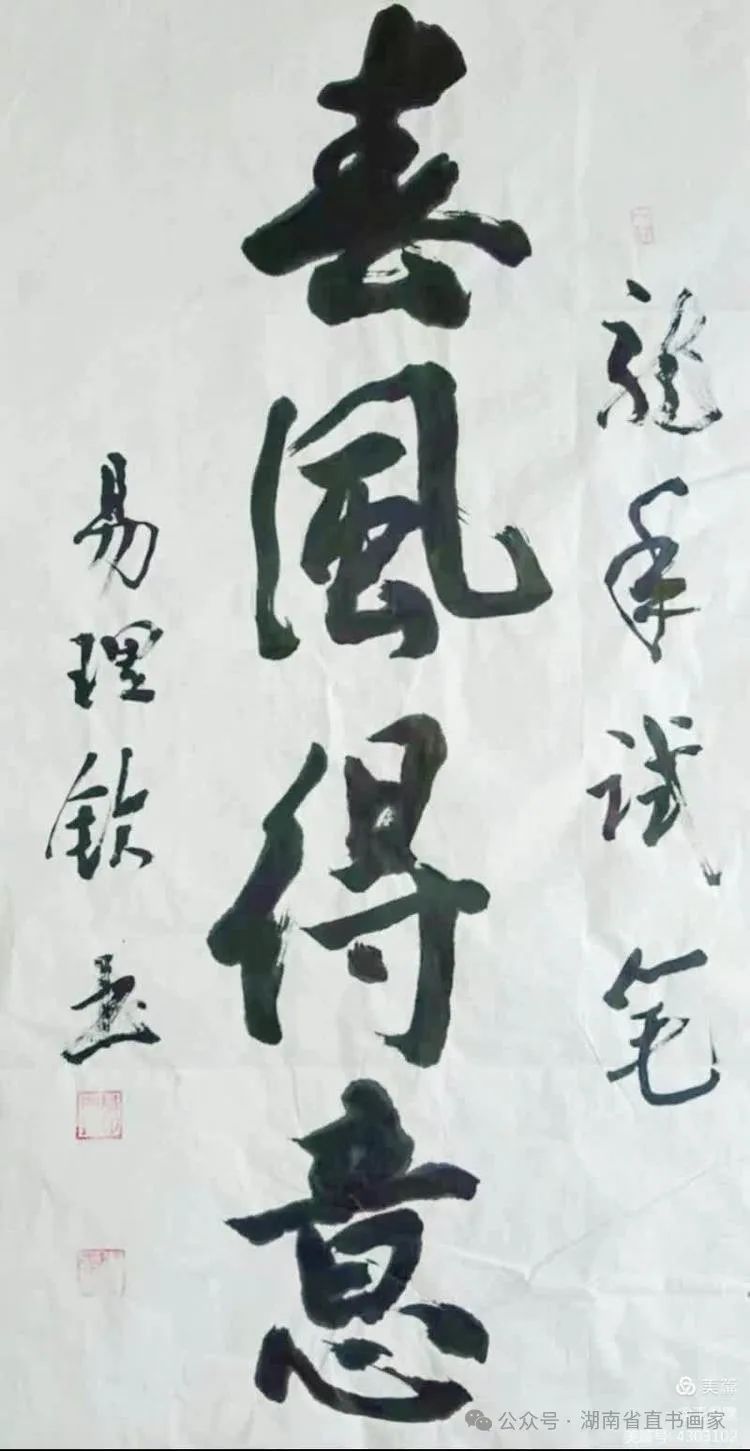 龍年试笔
春風得意
易理欽书
美篇
公众号·湖南省直书画家
美篇号:4303102